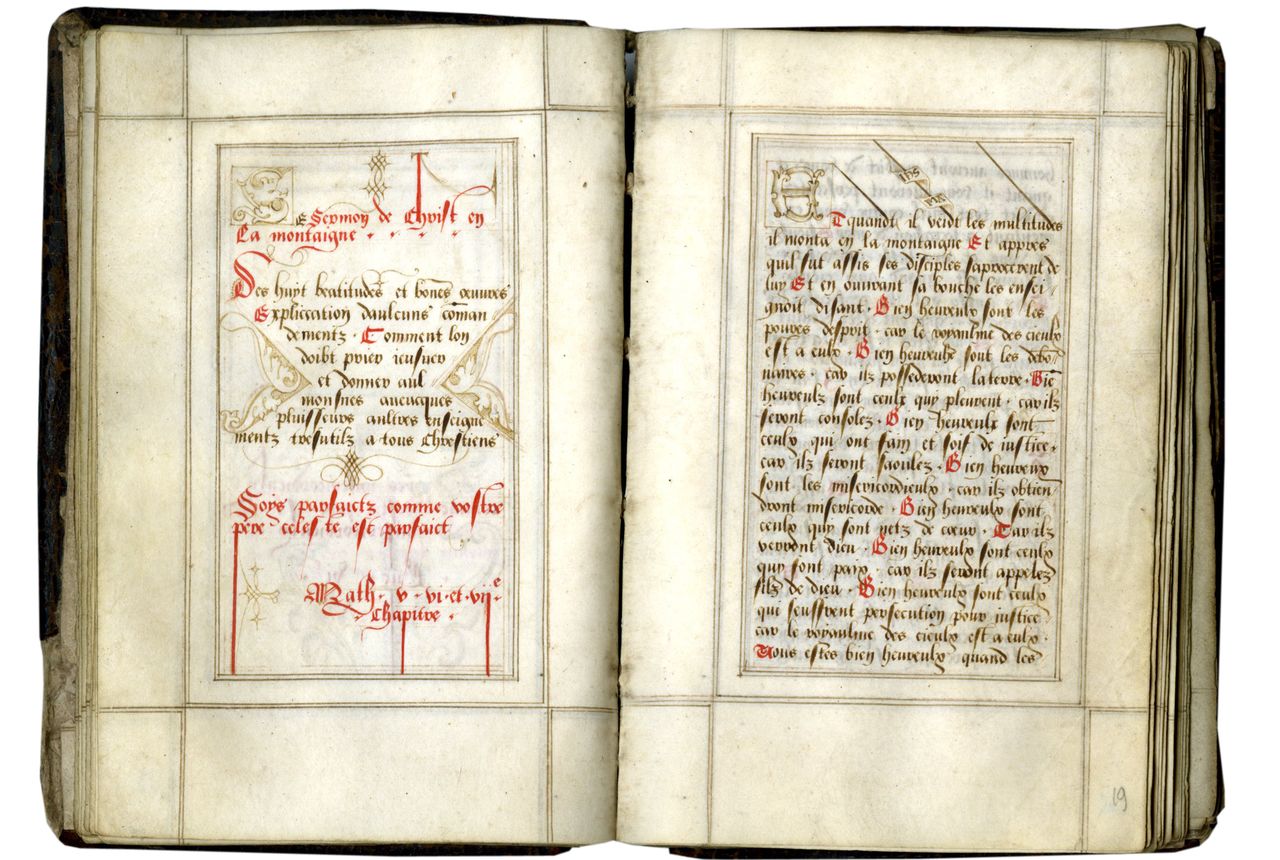 LE Sermon de Christ en
La montaigne
Des huyt beatitudes et bones œuvres
Expliccation daulcuns coman
dementz · Comment lon
doibt prier ieusner
et donner aul
monsnes avecques
pluisseurs aultres enseigne
mentz tresutilz a tous Chrestiens
Soys parfaictz comme vostre
pere celeste est parfaict
Math · v · vi · et · vii e ·
Chapitre ·
ihs
ma
ET quandt il veidt les multitudes
il monta en la montaigne Et appres
quil fut assis ses disciples saprocerent de
luy Et en ouvrant sa bouche les ensei
gnoit disant · Bien heureulx sont les
povres desprit · car le royaulme des cieulx
est a eulx · Bien heureulx sont les debo/
naires · car ilz possederont laterre · Bie
heureulz sont ceulx quy pleurent · car ilz
seront consolez · Bien heureulx sont
ceulx qui ont fain et soif de iustice ·
car ilz seront saoulez · Bien heureux
sont les misericordieulx · car ilz obtien
dront misericorde · Bien heureulx sont
ceulx quy sont netz de cœur · Car ilz
verront dieu · Bien heureulx sont ceulx
quy font paix · car ilz seront appelez
filz de dieu · Bien heureulx sont ceulx
qui seuffrent persecution pour iustice
car le royaulme des cieulx est a eulx ·
Vous estes bien heureulx quand les
19